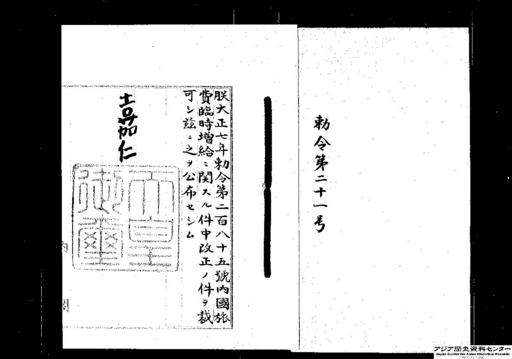 勅令第二十一号
朕大正七年勅令第二百八十五號内國旅
費臨時増給ニ関スル件中改正ノ件ヲ裁
可シ茲ニ之ヲ公布セシム
嘉仁
天皇
御璽
内閣
アジア歴史資料センター
Japan Center for Asian Historical Records